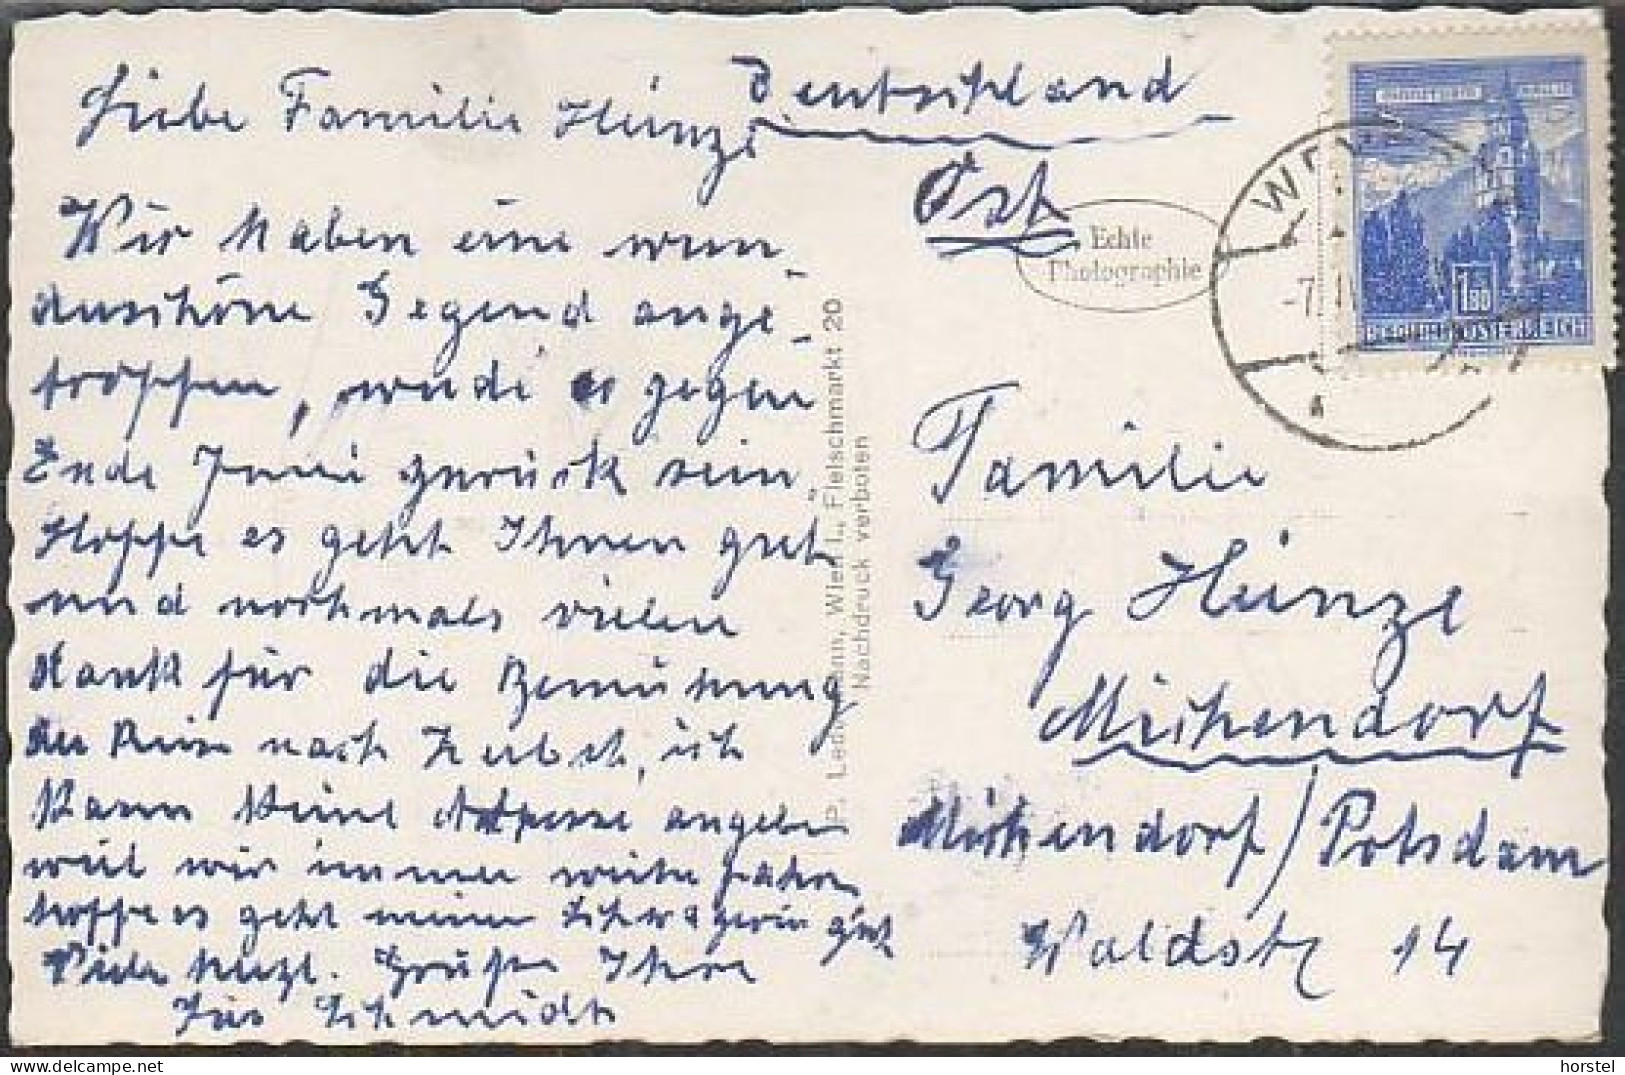 Deutschland
Ost
Liebe Familie Heinze
Wir haben eine wun-
derschöne Gegend ange-
troffen, werde so gegen
Ende Juni zurück sein,
Hoffe es geht Ihnen gut
und nochmals vielen
Dank für die Bemühung
der Reise nach Zerbst, ich
kann keine Adresse angeben
weil wir immer weiter fahren
hoffe es geht meiner Schwägerin gut
Viele herzl. Grüße Ihre
Schmidt
Echte
Photographie
P. Wien I., Fleischmarkt 20
Nachdruck verboten
1.80
REPUBLIK ÖSTERREICH
Familie
Georg Heinze
Michendorf
Michendorf/Potsdam
Waldstr 14
horstel